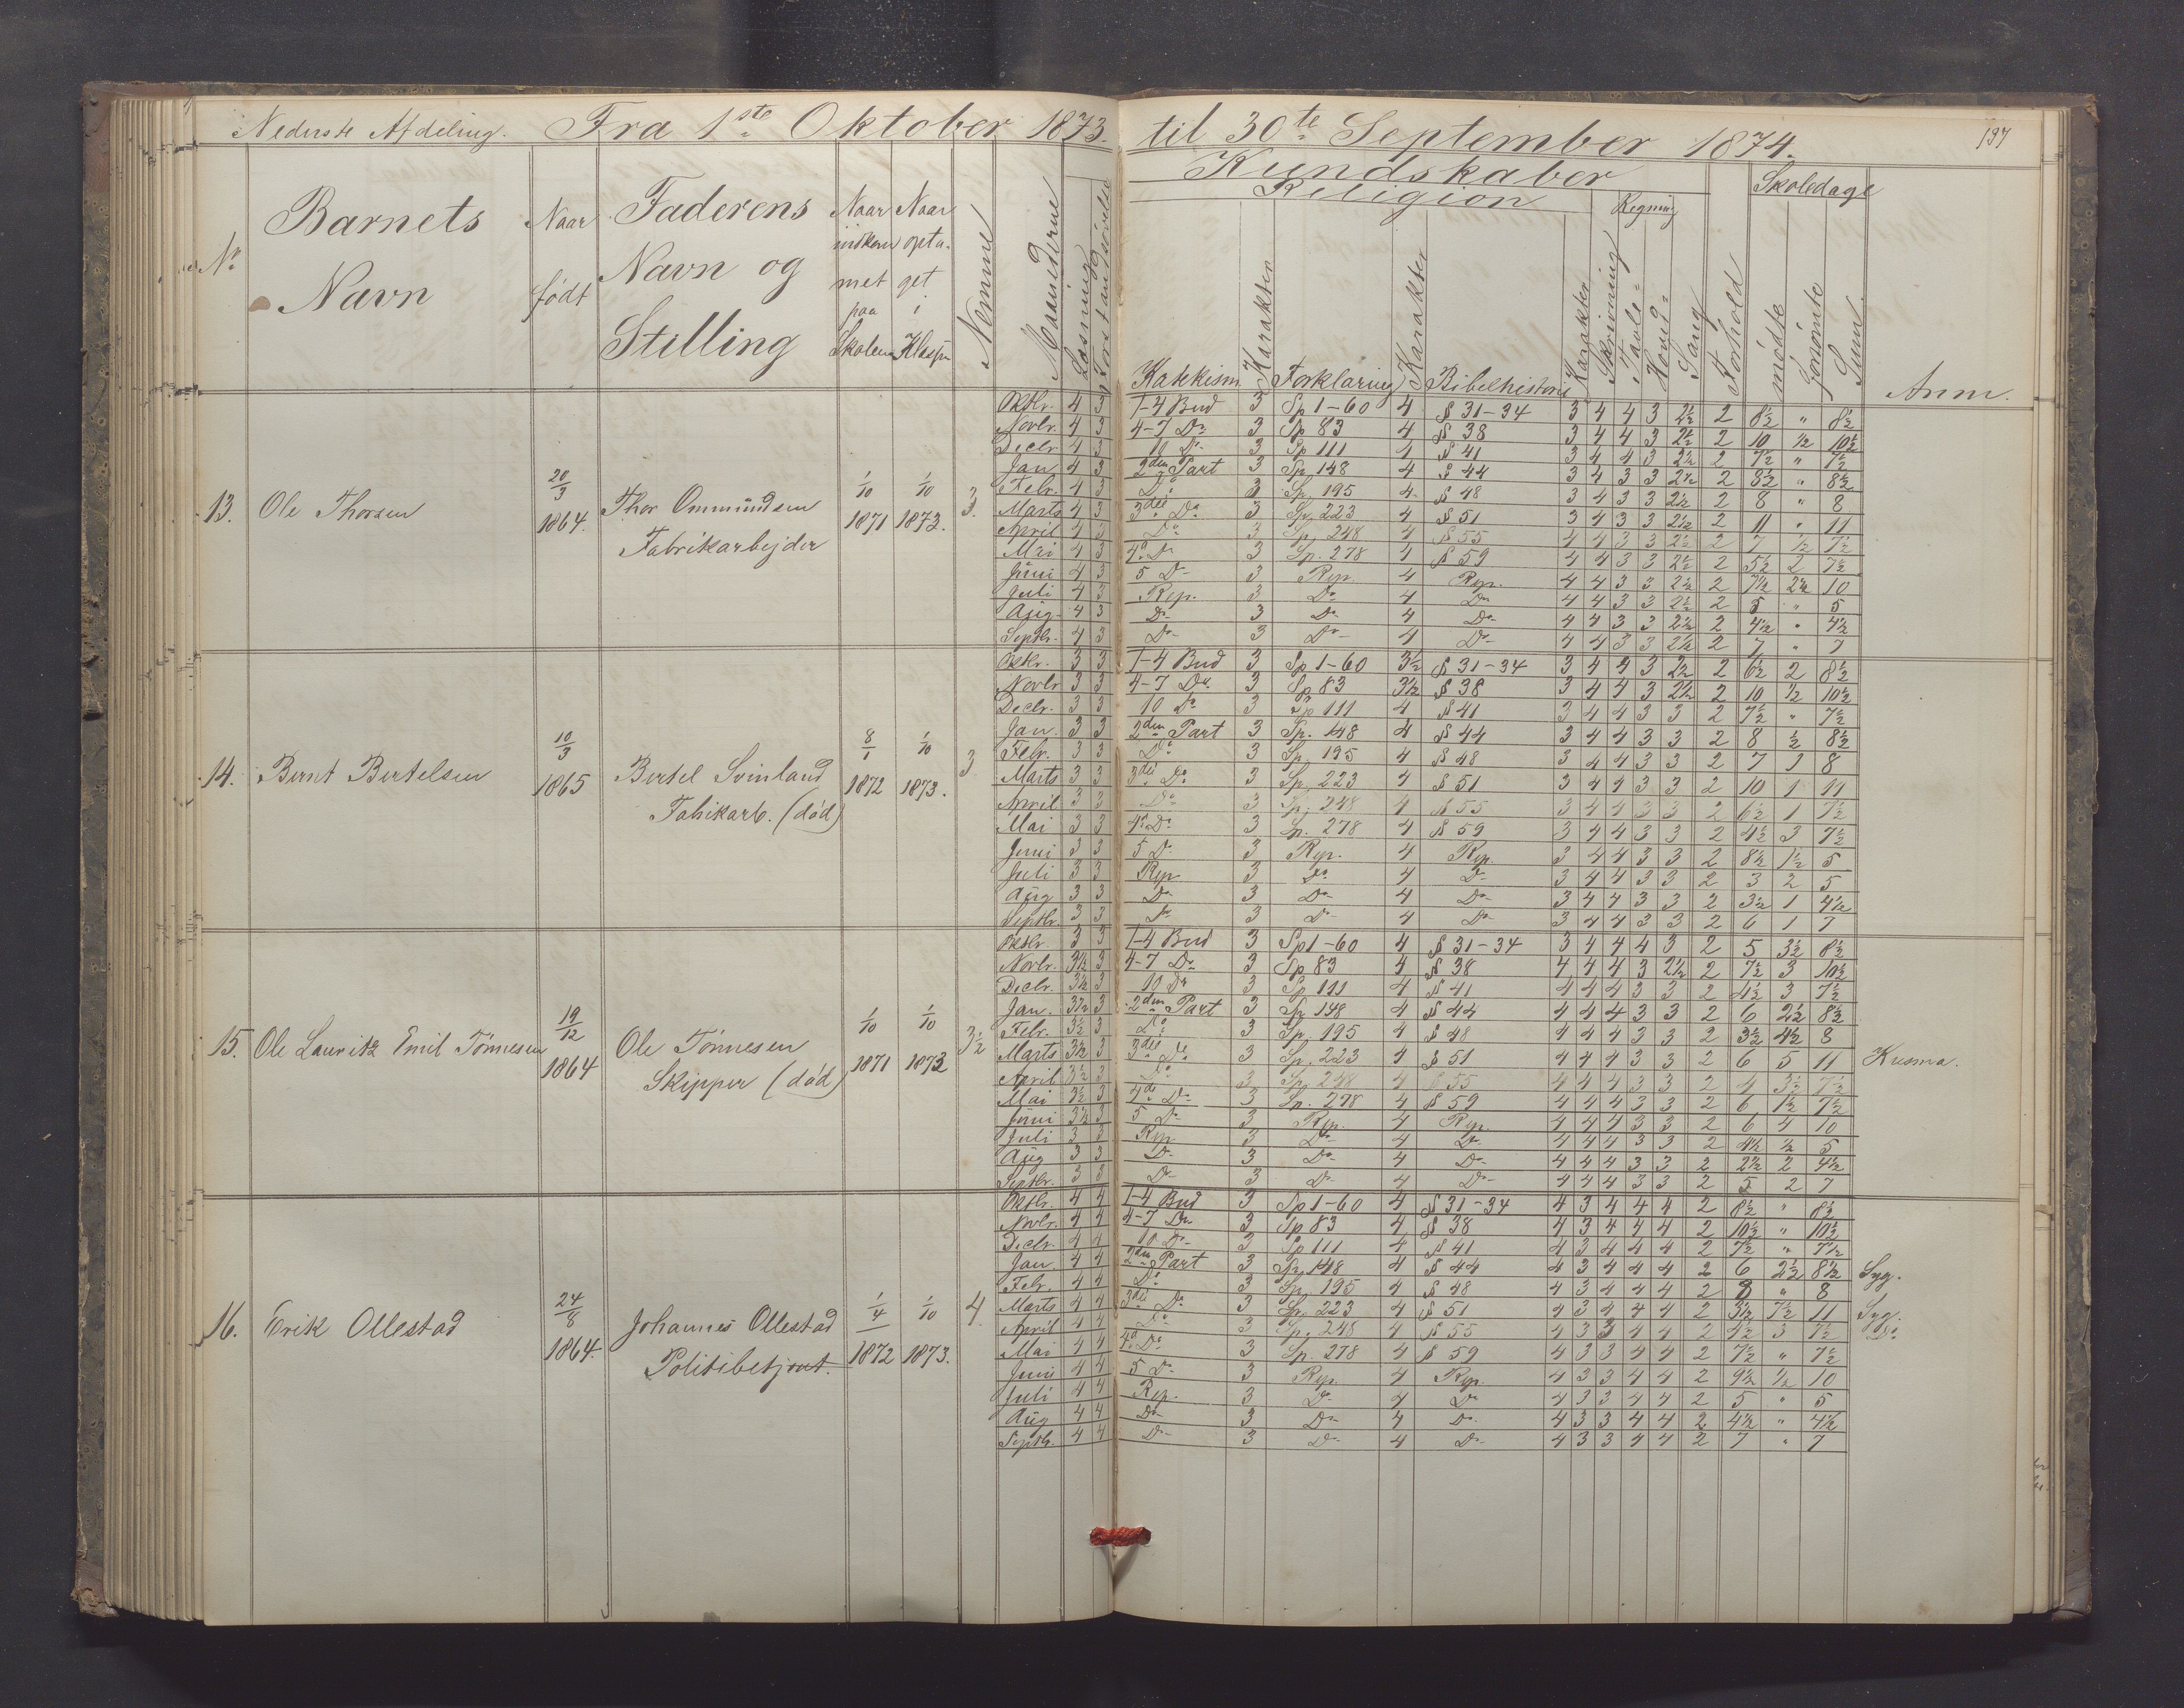 Nederste Afdeling. Fra 1ste Oktober 1873. til 30te September 1874. 197
Kundskaber
Religion Regning Skoledage
No Barnets Navn Naar født Faderens Navn og Stilling Naar indkommet paa Skolen Naar optaget i Klassen Nemme Maanederne Læsning Forstandsøvelse Katekism. Karakter Forklaring Karakter Bibelhistorie Karakter Skrivning Tavle= Hoved= Sang Forhold mødte forsømte Sum Anm.
13. Ole Thorsen 20/3 1864. Thor Ommundsen Fabrikarbejder 1/10 1871 1/10 1873. 3.
Oktbr. 4 3 1-4 Bud 3 Sp 1-60 4 § 31-34 3 4 4 3 2½ 2 8½ " 8½
Novbr. 4 3 4-7 Do 3 Sp 83 4 § 38 3 4 4 3 2½ 2 10 ½ 10½
Decbr. 4 3 10 Do 3 Sp 111 4 § 41 3 4 4 3 2½ 2 7½ " 7½
Jan. 4 3 2den Part 3 Sp. 148 4 § 44 3 4 3 3 2½ 2 8½ " 8½
Febr. 4 3 Do 3 Sp. 195 4 § 48 3 4 3 3 2½ 2 8 " 8
Marts 4 3 3die Do 3 Sp. 223 4 § 51 3 4 3 3 2½ 2 11 " 11
April 4 3 Do 3 Sp. 248 4 § 55 4 4 3 3 2½ 2 7 ½ 7½
Mai 4 3 4de Do 3 Sp. 278 4 § 59 4 4 3 3 2½ 2 5½ 2 7½
Juni 4 3 5 Do 3 Rep. 4 Rep. 4 4 3 3 2½ 2 7½ 2½ 10
Juli 4 3 Rep. 3 Do 4 Do 4 4 3 3 2½ 2 5 " 5
Aug. 4 3 Do 3 Do 4 Do 4 4 3 3 2½ 2 4½ " 4½
Septbr. 4 3 Do 3 Do 4 Do 4 4 3 3 2½ 2 7 " 7
14. Bernt Bertelsen 10/3 1865 Bertel Svinland Fabrikarb. (død) 8/1 1872 1/10 1873. 3
Oktbr. 3 3 1-4 Bud 3 Sp 1-60 3½ § 31-34 3 4 4 3 2½ 2 6½ 2 8½
Novbr. 3 3 4-7 Do 3 Sp 83 3½ § 38 3 4 4 3 2½ 2 10 ½ 10½
Decbr. 3 3 10 Do 3 Sp 111 4 § 41 3 4 4 3 3 2 7½ " 7½
Jan. 3 3 2den Part 3 Sp. 148 4 § 44 3 4 4 3 3 2 8 ½ 8½
Febr. 3 3 Do 3 Sp. 195 4 § 48 3 4 4 3 3 2 7 1 8
Marts 3 3 3die Do 3 Sp. 223 4 § 51 3 4 4 3 3 2 10 1 11
April 3 3 Do 3 Sp. 248 4 § 55 3 4 4 3 3 2 6½ 1 7½
Mai 3 3 4de Do 3 Sp. 278 4 § 59 3 4 4 3 3 2 4½ 3 7½
Juni 3 3 5 Do 3 Rep. 4 Rep. 3 4 4 3 3 2 8½ 1½ 5
Juli 3 3 Rep 3 Do 4 Do 3 4 4 3 3 2 3 2 5
Aug 3 3 Do 3 Do 4 Do 3 4 4 3 3 2 3½ 1 4½
Septbr. 3 3 Do 3 Do 4 Do 3 4 4 3 3 2 6 1 7
15. Ole Lauritz Emil Tönnesen 19/12 1864 Ole Tönnesen Skipper (død) 1/10 1871 1/10 1873 3½
Oktbr. 3 3 1-4 Bud 3 Sp 1-60 4 § 31-34 3 4 4 4 3 2 5 3½ 8½
Novbr. 3½ 3 4-7 Do 3 Sp 83 4 § 38 4 4 4 3 2½ 2 7½ 3 10½
Decbr. 3½ 3 10 Do 3 Sp 111 4 § 41 4 4 4 3 3 2 4½ 3 7½
Jan. 3½ 3 2den Part 3 Sp 148 4 § 44 4 4 4 3 3 2 6 2½ 8½
Febr. 3½ 3 Do 3 Sp. 195 4 § 48 4 4 4 3 3 2 3½ 4½ 8
Marts 3½ 3 3die Do 3 Sp. 223 4 § 51 4 4 4 3 3 2 6 5 11
April 3½ 3 Do 3 Sp. 248 4 § 55 4 4 4 3 3 2 4 3½ 7½
Mai 3½ 3 4de Do 3 Sp. 278 4 § 59 4 4 4 3 3 2 6 1½ 7½
Juni 3½ 3 5 Do 3 Rep. 4 Rep. 4 4 4 3 3 2 6 4 10
Juli 3 3 Rep. 3 Do 4 Do 4 4 4 3 3 2 4½ ½ 5
Aug 3 3 Do 3 Do 4 Do 4 4 4 3 3 2 2½ 2 4½
Septbr. 3 3 Do 3 Do 4 Do 4 4 4 3 3 2 5 2 7
16. Erik Ollestad 24/8 1864. Johannes Ollestad Politibetjent. 1/4 1872 1/10 1873. 4.
Oktbr. 4 4 1-4 Bud 3 Sp 1-60 4 § 31-34 4 3 4 4 4 2 8½ " 8½
Novbr. 4 4 4-7 Do 3 Sp 83 4 § 38 4 3 4 4 4 2 10½ " 10½
Decbr. 4 4 10 Do 3 Sp 111 4 § 41 4 3 4 4 4 2 7½ " 7½
Jan. 4 4 2den Part 3 Sp. 148 4 § 44 4 3 4 4 4 2 6 2½ 8½ Syg.
Febr. 4 4 Do 3 Sp. 195 4 § 48 4 3 4 4 4 2 8 " 8
Marts 4 4 3die Do 3 Sp. 223 4 § 51 4 3 4 4 4 2 3½ 7½ 11 Syg.
April 4 4 Do 3 Sp. 248 4 § 55 4 3 3 4 4 2 4½ 3 7½ Do
Mai 4 4 4de Do 3 Sp. 278 4 § 59 4 3 3 4 4 2 7½ " 7½
Juni 4 4 5 Do 3 Rep. 4 Rep. 4 3 3 4 4 2 9½ ½ 10
Juli 4 4 Rep. 3 Do 4 Do 4 3 3 4 4 2 5 " 5
Aug 4 4 Do 3 Do 4 Do 4 3 3 4 4 2 4½ " 4½
Septbr. 4 4 Do 3 Do 4 Do 4 3 3 4 4 2 7 " 7